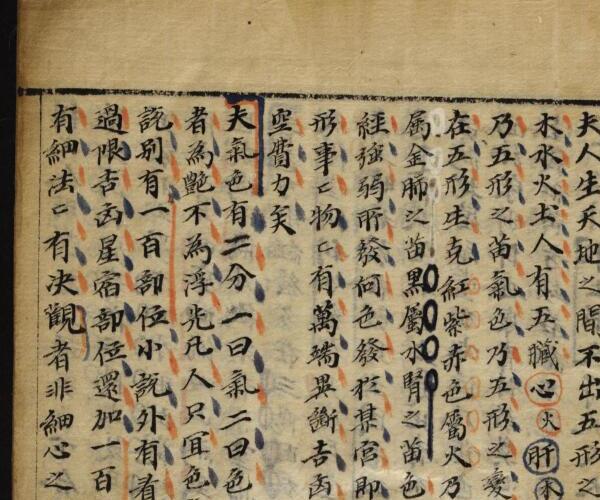 夫人生天地之間不出五形之
木水火土人有五臓心火肝木
乃五形之苗氣色乃五形之變
在五形生克紅紫赤色屬火乃
属金肺之苗黑屬水腎之苗色
経強弱所發何色發於某宫即
形事〻物〻有萬端異斷吉凶
空費力矣
夫氣色有二分一曰氣二曰色
者為艶不為浮光凡人只宜色
説别有一百部位小説外有看
過限吉凶星宿部位還加一百
有細法〻有决觀者非細心之